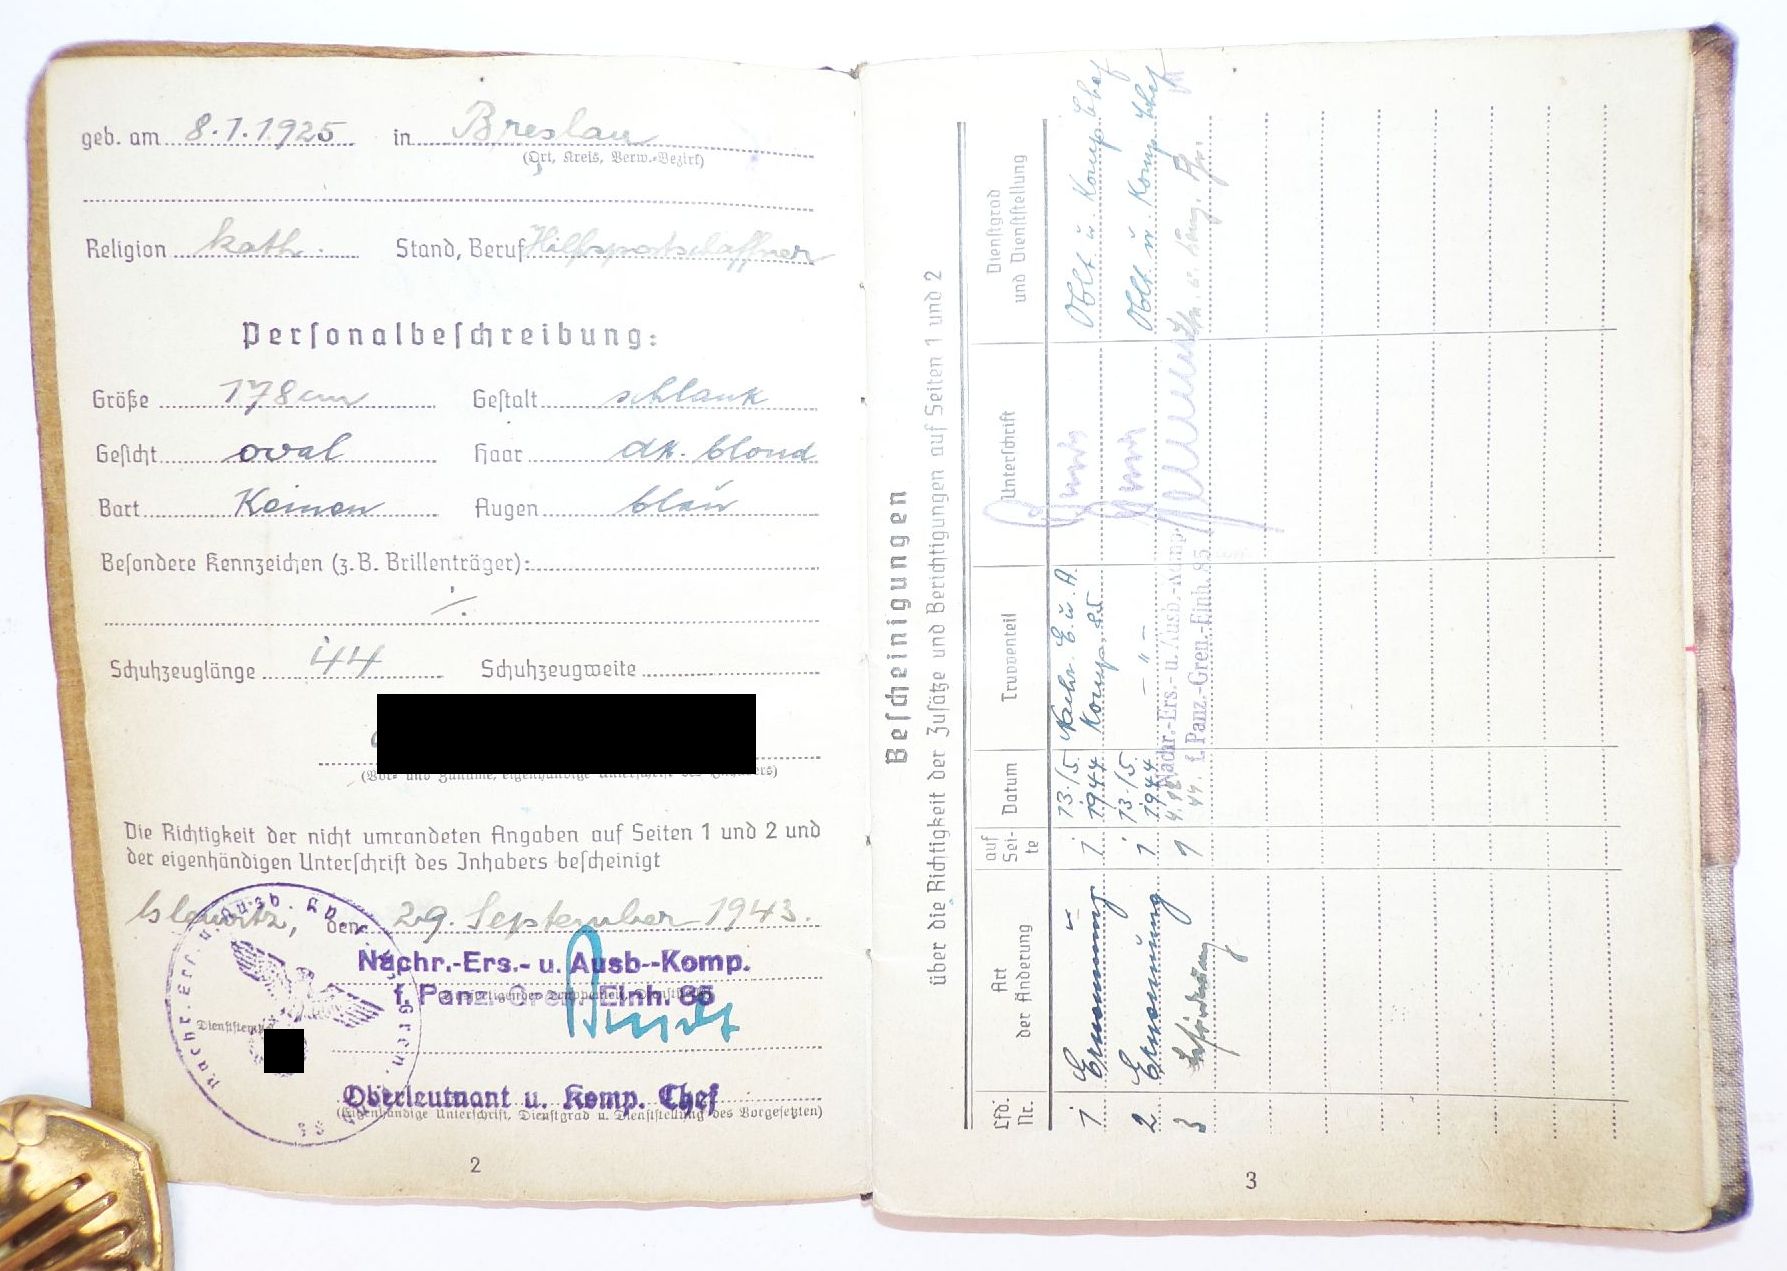 geb. am 8.1.1925 in Breslau
(Ort, Kreis, Verw.-Bezirk)
Religion kath. Stand, Beruf Hilfspostschaffner
Personalbeschreibung:
Größe 178 cm Gestalt schlank
Gesicht oval Haar dk. blond
Bart Keinen Augen blau
Besondere Kennzeichen (z.B. Brillenträger):
./.
Schuhzeuglänge 44 Schuhzeugweite
(Vor- und Zuname, eigenhändige Unterschrift des Inhabers)
Die Richtigkeit der nicht umrandeten Angaben auf Seiten 1 und 2 und
der eigenhändigen Unterschrift des Inhabers bescheinigt
den 29. September 1943.
Nachr.-Ers.- u. Ausb--Komp.
f. Panz. Gren. Einh. 85
Dienststempel
Oberleutnant u. Komp. Chef
(Eigenhändige Unterschrift, Dienstgrad u. Dienststellung des Vorgesetzten)
2
Bescheinigungen
über die Richtigkeit der Zusätze und Berichtigungen auf Seiten 1 und 2
Lfd. Nr. Art der Änderung auf Sei-te Datum Truppenteil Unterschrift Dienstgrad und Dienststellung
1 Ernennung 1 13./5. 1944 Nachr. E. u. A. Komp. 85 Oblt u. Komp Chef
2 Ernennung 1 13./5. 1944 – " – Oblt. u. Komp. Chef
3 Beförderung 1 Nachr.-Ers.- u. Ausb.-Komp.
f. Panz.-Gren.-Einh. 85
3